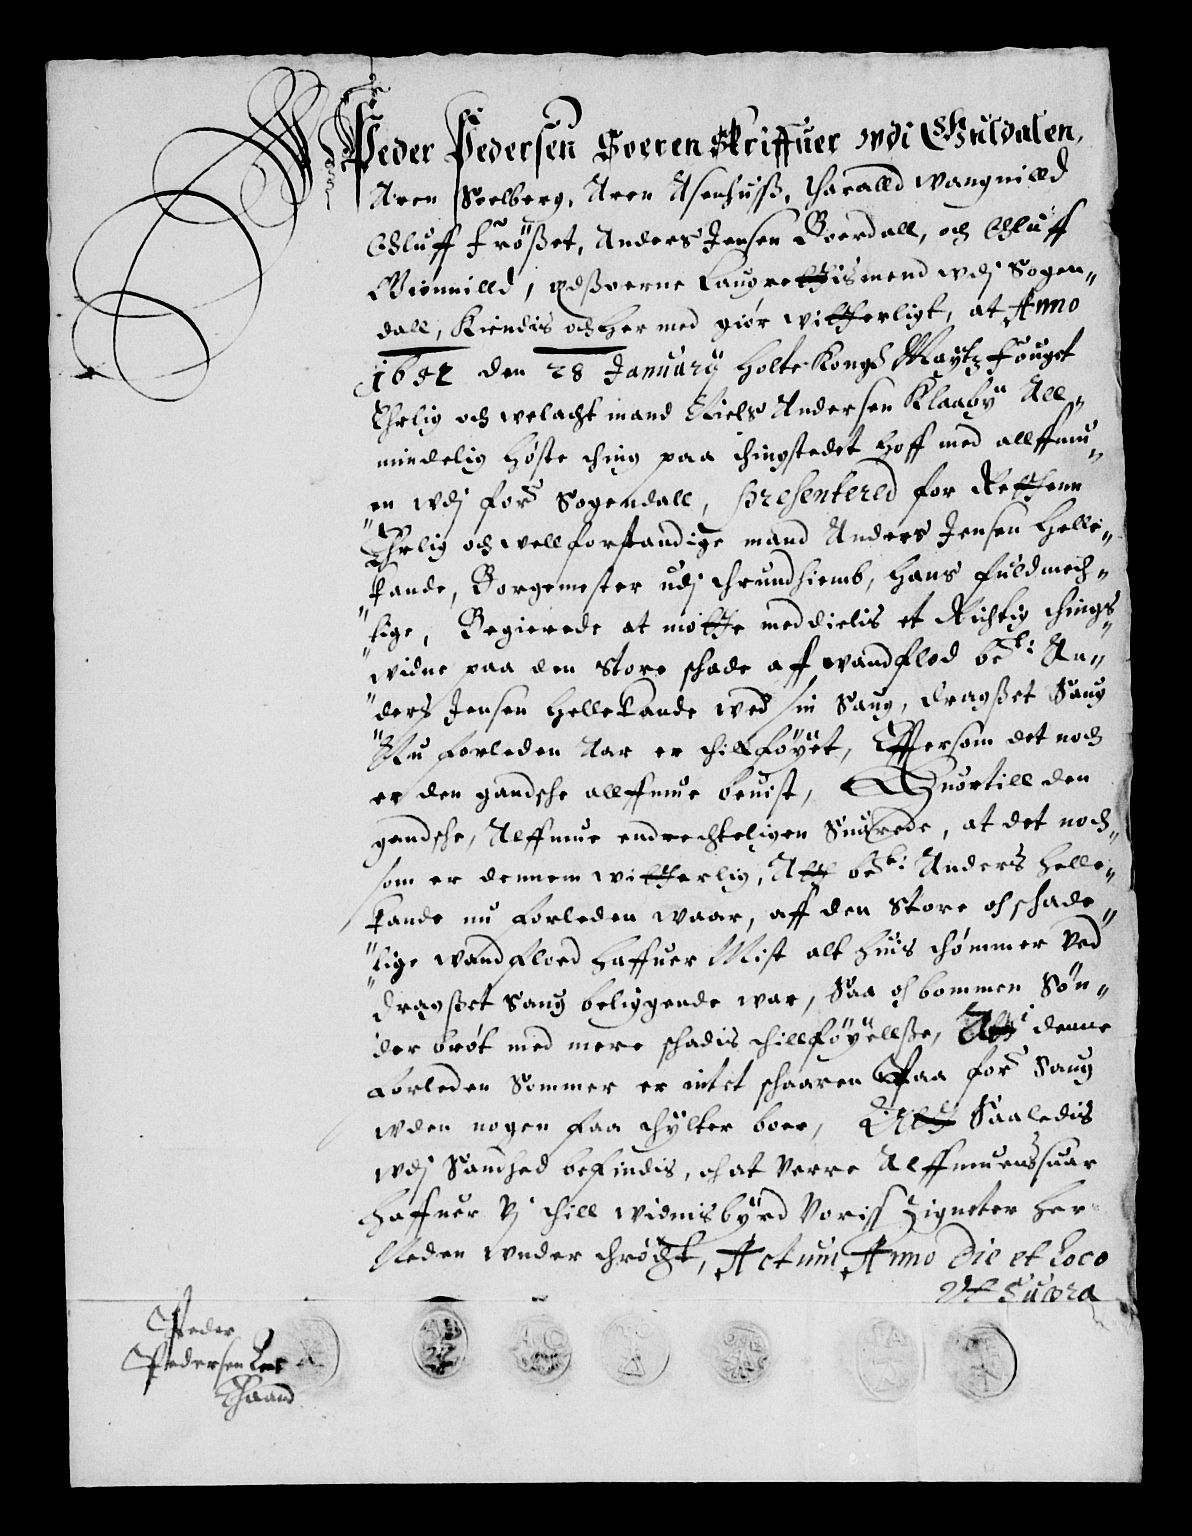 Peder Pedersen Soeren Skriffuer wdi Guldalen,
Aren Soelberg, Aren Asenhuß, Haralld Wangnilld
Oluff Frößet, Anders Jensen Boerdall, och Oluff
Winnilld, edßoerne Laugrettismend wdj Sogen„
dall, Kiendis och her med giör witterligt, at Anno
1652 den 28 January Holte Kongl Maytz Fouget
Ehrlig och welacht mand Niels Andersen Klaaby All„
mindelig Höste ting paa tingstedet Hoff med allffmu„
en wdj fors Sogendall, presentered for Rettenn
Ehrlig och wellforstandige mand Anders Jensen Helle„
kande, Borgemester udj Trundhiemb, Hans fuldmech„
tige, Begierede at motte meddielis et Richtig tings„
widne paa den store schade af wandflod bete: An„
ders Jensen Hellekande wed sin Saug, Dragßet Saug
Nu forleden Aar er tillföyet, Effter som det noch
er den gandsche allffmue beuist, Huortill den
gandsche, Allffmue endrechteligen Suarede, at det noch„
som er dennem witterlig, Att bete: Anders Helle„
kande nu forleden waar, aff den store och schade„
lige wandfloed haffuer Mist alt huis tömmer ved
Dragßet Saug beliggende war, Saa och bommen Sön„
der bröt med mere schadis tillföyellße, Att i denne
forleden Sommer er intet schaaren Paa fors Saug
wden nogen faa tylter boer, Alt Saaledis
wdj Sandhed befindis, och at verre Allffmuens suar
haffuer Vj till widnisbyrd Voriss Zigneter her
Neden wnder tröcht, Actum Anno Die et Loco
Vt Supra
Peder
Pedersen
Haand